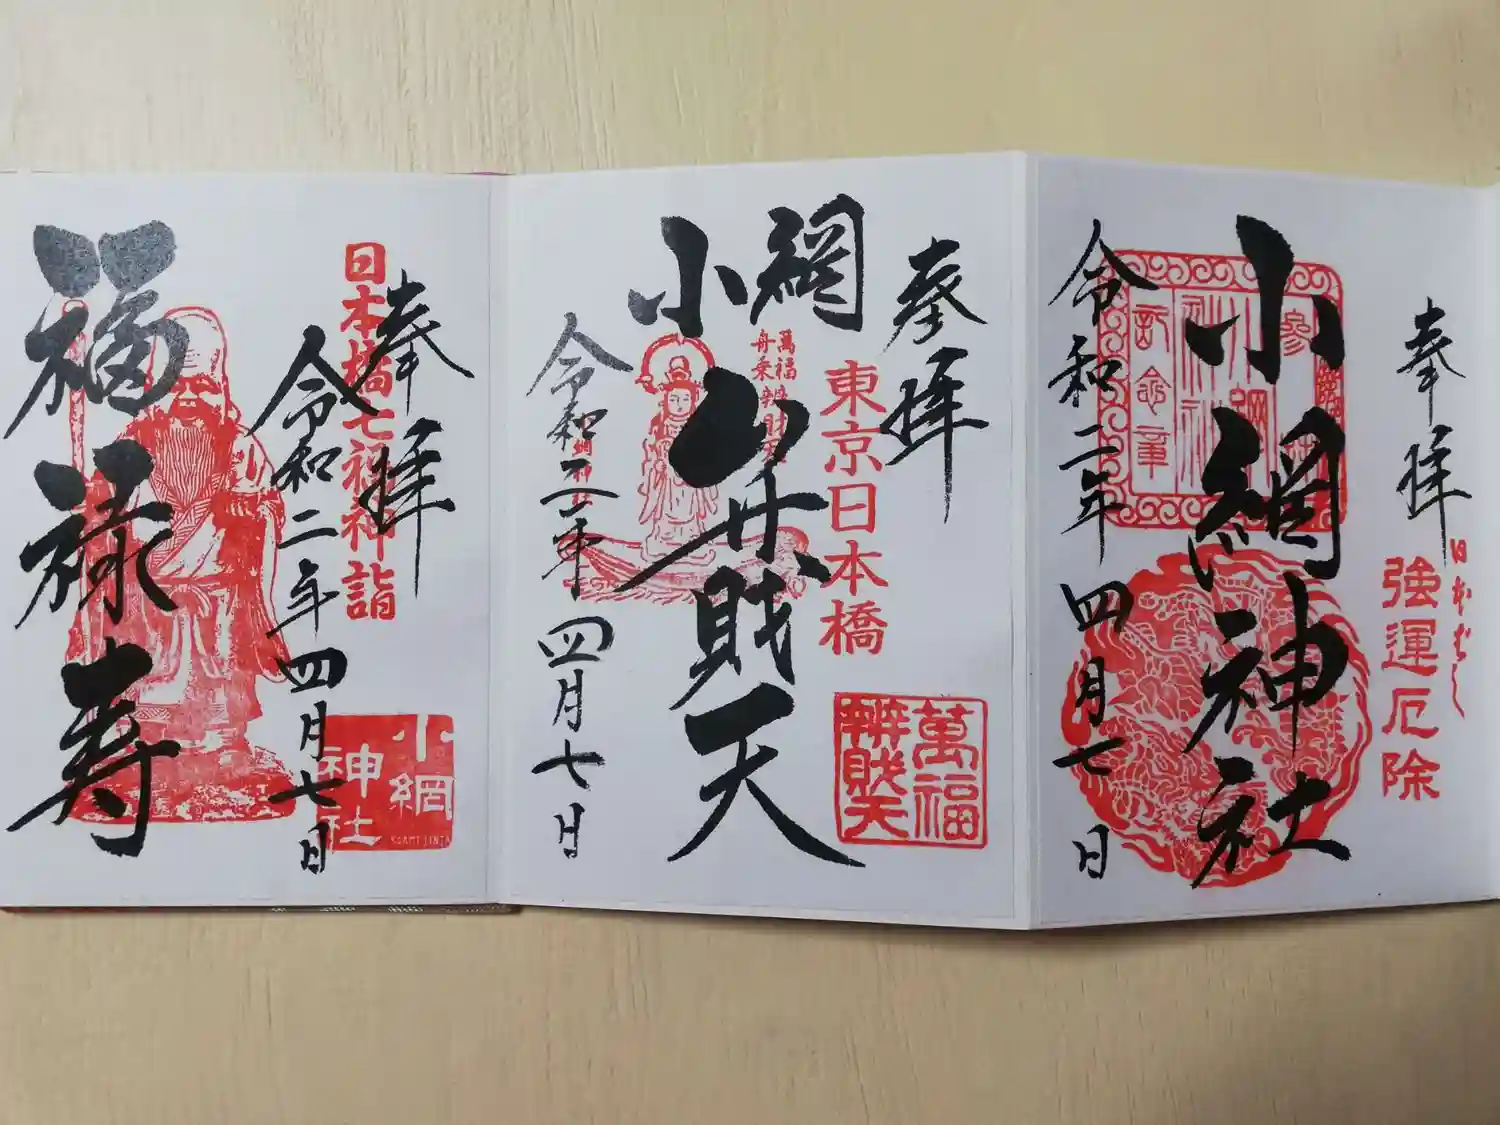 奉拝
日本ばし
強運厄除
小網神社
参拝
小網神社
記念章
令和二年四月七日
奉拝
東京日本橋
萬福辨財天
小網
弁財天
萬福
舟乗辨財天
小網神社
令和二年四月七日
奉拝
日本橋七福神詣
小網神社
KOAMIJINJA
令和二年四月七日
福禄寿